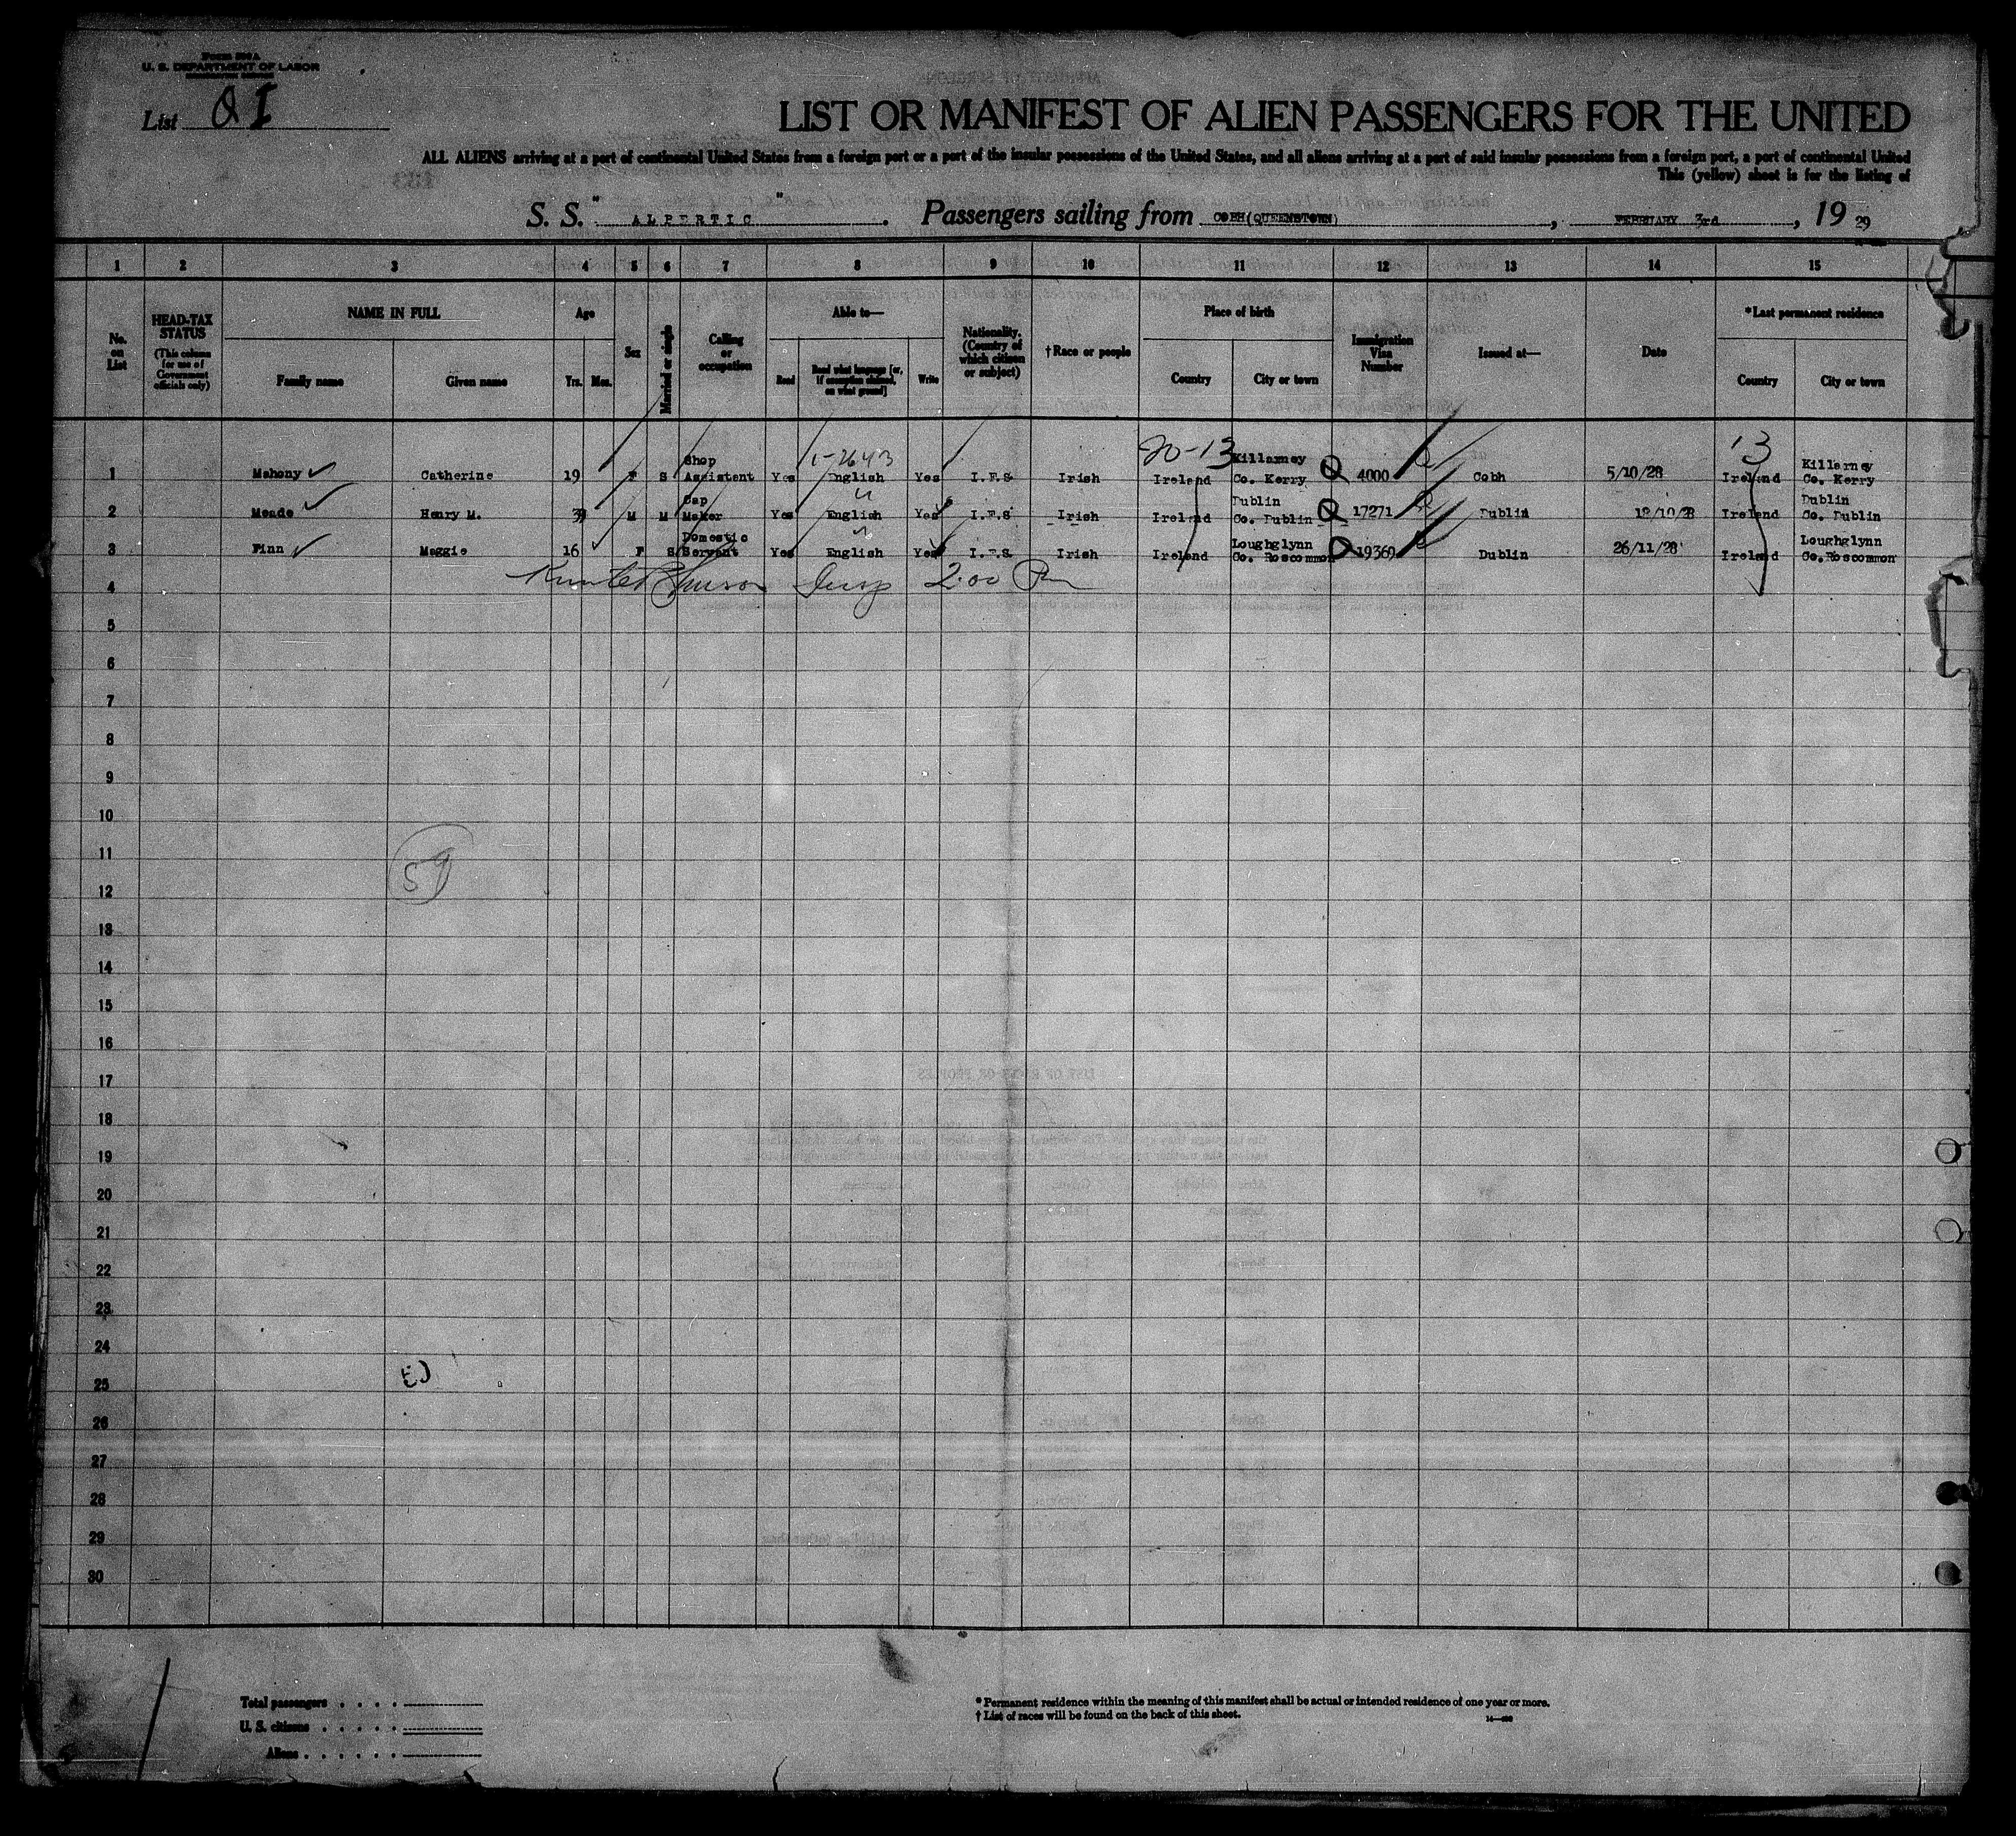 Form 500 A
U. S. DEPARTMENT OF LABOR
List Q I
LIST OR MANIFEST OF ALIEN PASSENGERS FOR THE UNITED
ALL ALIENS arriving at a port of continental United States from a foreign port or a port of the insular possessions of the United States, and all aliens arriving at a port of said insular possessions from a foreign port, a port of continental United
This (yellow) sheet is for the listing of
S. S. " ALBERTIC ". Passengers sailing from COBH(QUEENSTOWN), FEBRUARY 3rd, 19 29
1 2 3 4 5 6 7 8 9 10 11 12 13 14 15
No. on List
HEAD-TAX STATUS (This column for use of Government officials only)
NAME IN FULL
Family name
Given name
Age
Yrs. Mos.
Sex
Married or single
Calling or occupation
Able to—
Read
Read what language [or, if exemption claimed, on what ground]
Write
Nationality. (Country of which citizen or subject)
† Race or people
Place of birth
Country
City or town
Immigration Visa Number
Issued at—
Date
*Last permanent residence
Country
City or town
20-13 13
1 Mahony Catherine 19 F S Shop Assistent Yes English Yes I.F.S. Irish Ireland Killarney Co. Kerry 4000 Cobh 5/10/28 Ireland Killarney Co. Kerry
2 Meade Henry M. 39 M M Cap Maker Yes English Yes I.F.S Irish Ireland Dublin Co. Dublin 17271 Dublin 12/10/28 Ireland Dublin Co. Dublin
3 Finn Maggie 16 F S Domestic Servant Yes English Yes I.F.S. Irish Ireland Loughglynn Co. Roscommon 19369 Dublin 26/11/28 Ireland Loughglynn Co.Roscommon
2.00 Pm
4
5
6
7
8
9
10
11
59
12
13
14
15
16
17
18
19
20
21
22
23
24
25
26
27
28
29
30
Total passengers
U. S. citizens
Aliens
* Permanent residence within the meaning of this manifest shall be actual or intended residence of one year or more.
† List of races will be found on the back of this sheet.